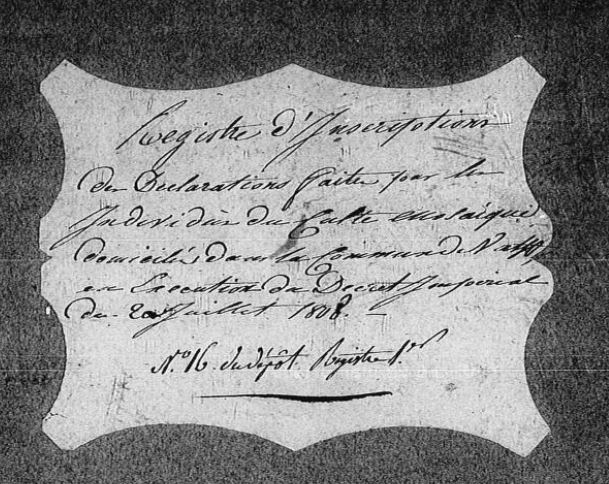 Registre d'Inscriptions
des Declarations faites par les
Individus du Culte mosaïque
domiciliés dans la Commune de
en Execution du Decret Imperial
du 20 Juillet 1808.
N.º 16 du dépôt Registre 1.er